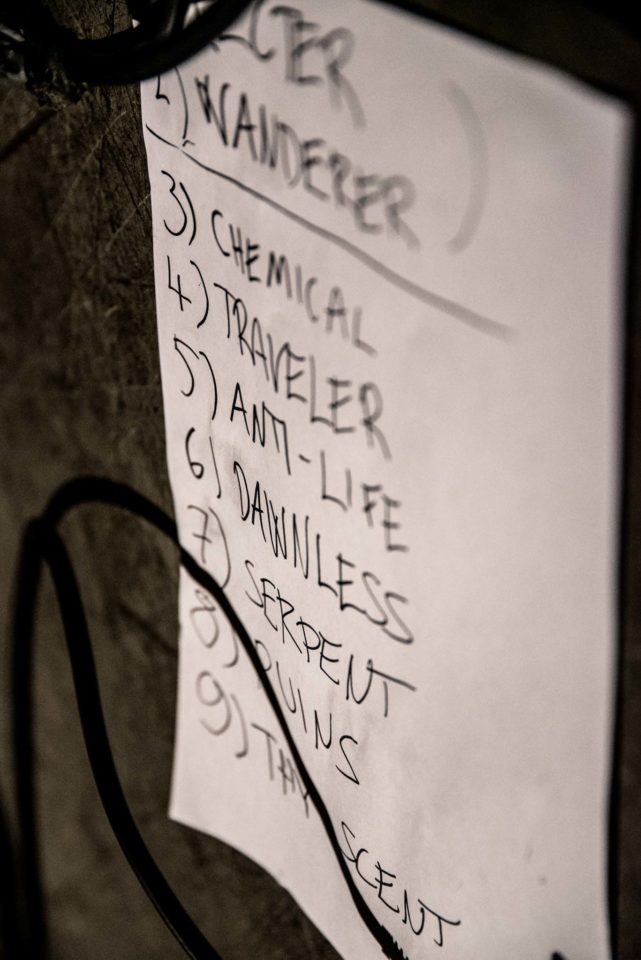 2) WANDERER )
3) CHEMICAL
4) TRAVELER
5) ANTI-LIFE
6) DAWNLESS
7) SERPENT
8)
9) THY SCENT